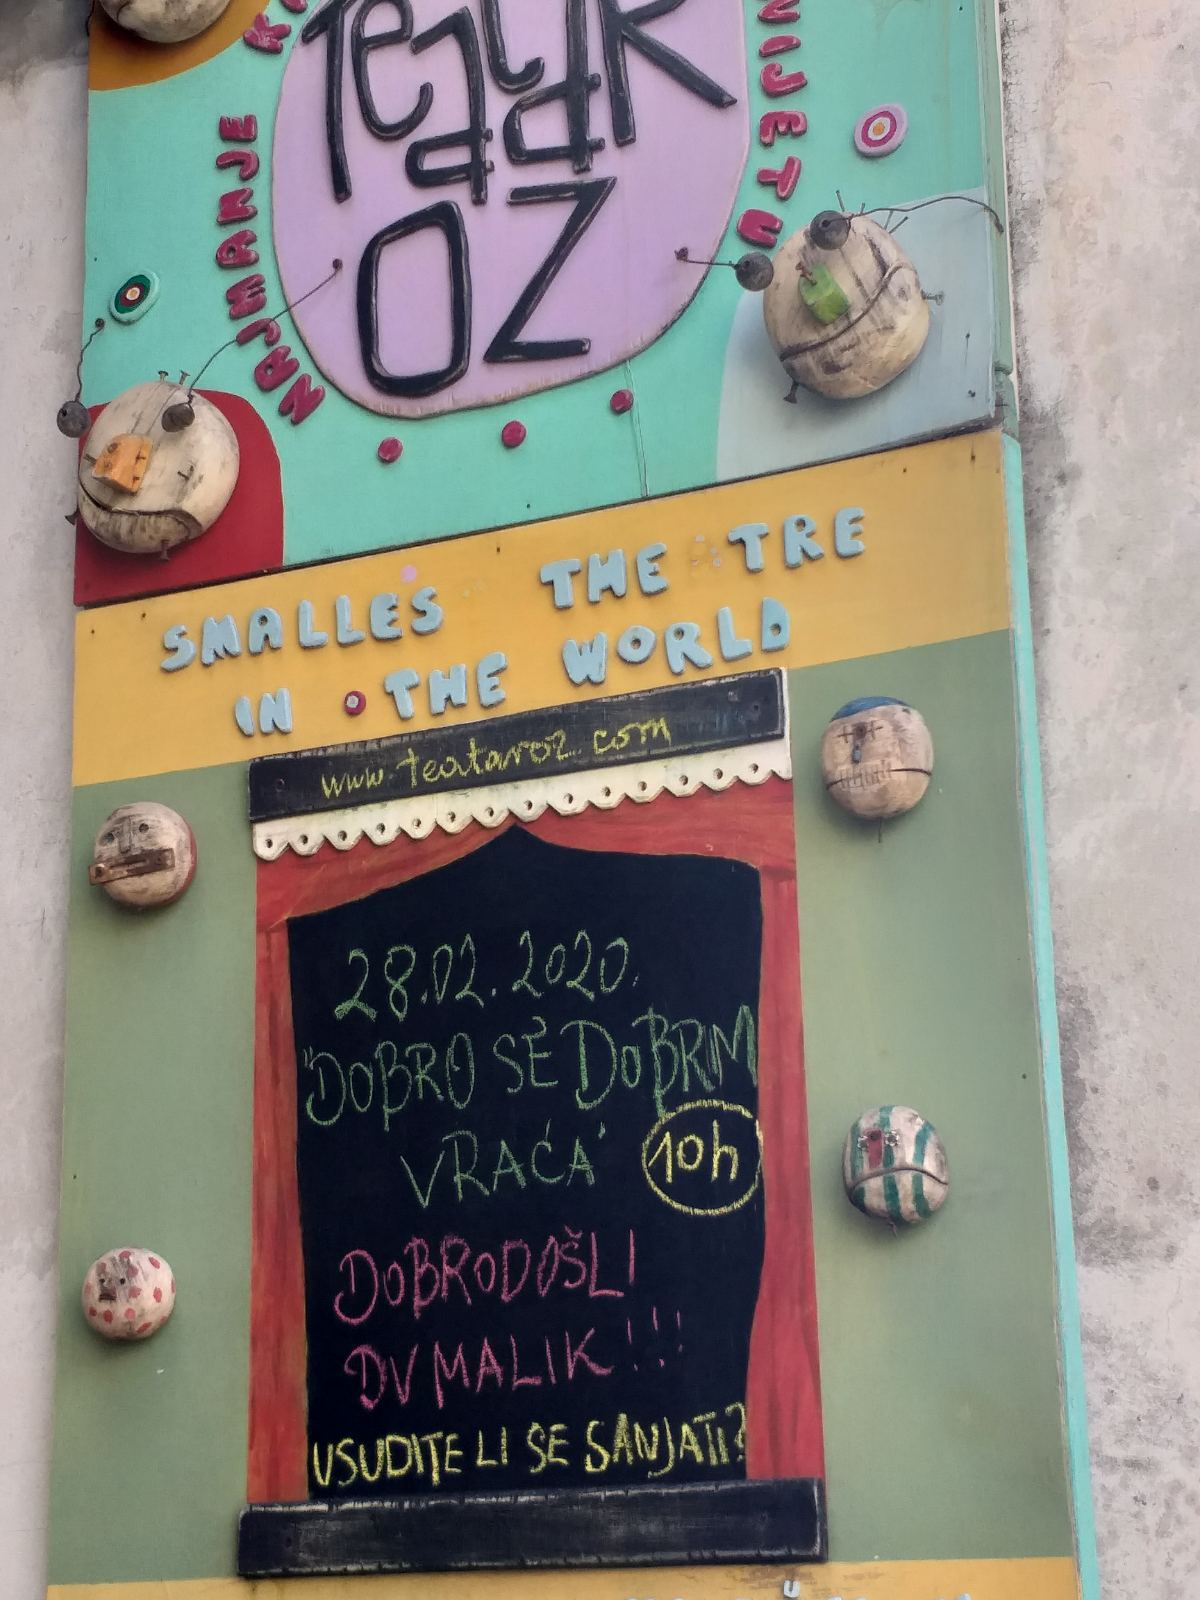 Teatar
OZ
NAJMANJE
SMALLES THE TRE
IN THE WORLD
www.teataroz.com
28.02.2020.
"DOBRO SE DOBRIM
VRAĆA" 10h
DOBRODOŠLI
DV MALIK!!!
USUDITE LI SE SANJATI?